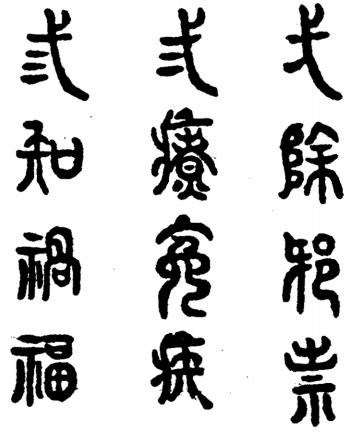 弌除邪祟
弍療冤疾
弎知禍福